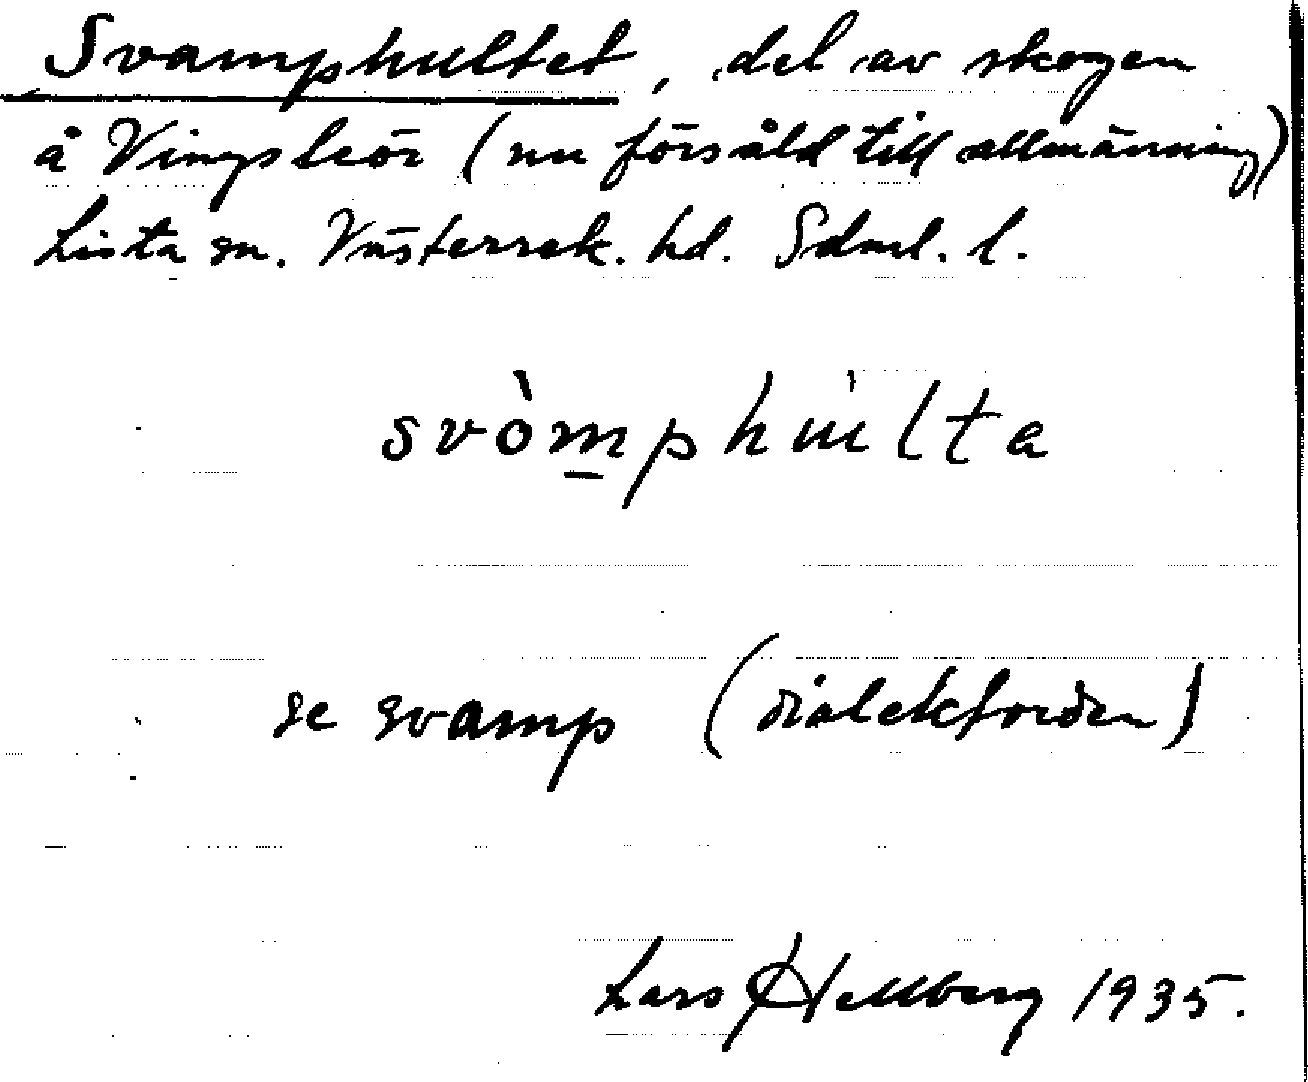 Svamphultet, del av skogen
å Vingsleör (nu försåld till allmänning)
Lista sn. Västerrek. hd. Sdml. l.
svòmphulta
se svamp (dialektorden)
Lars Hellberg 1935.